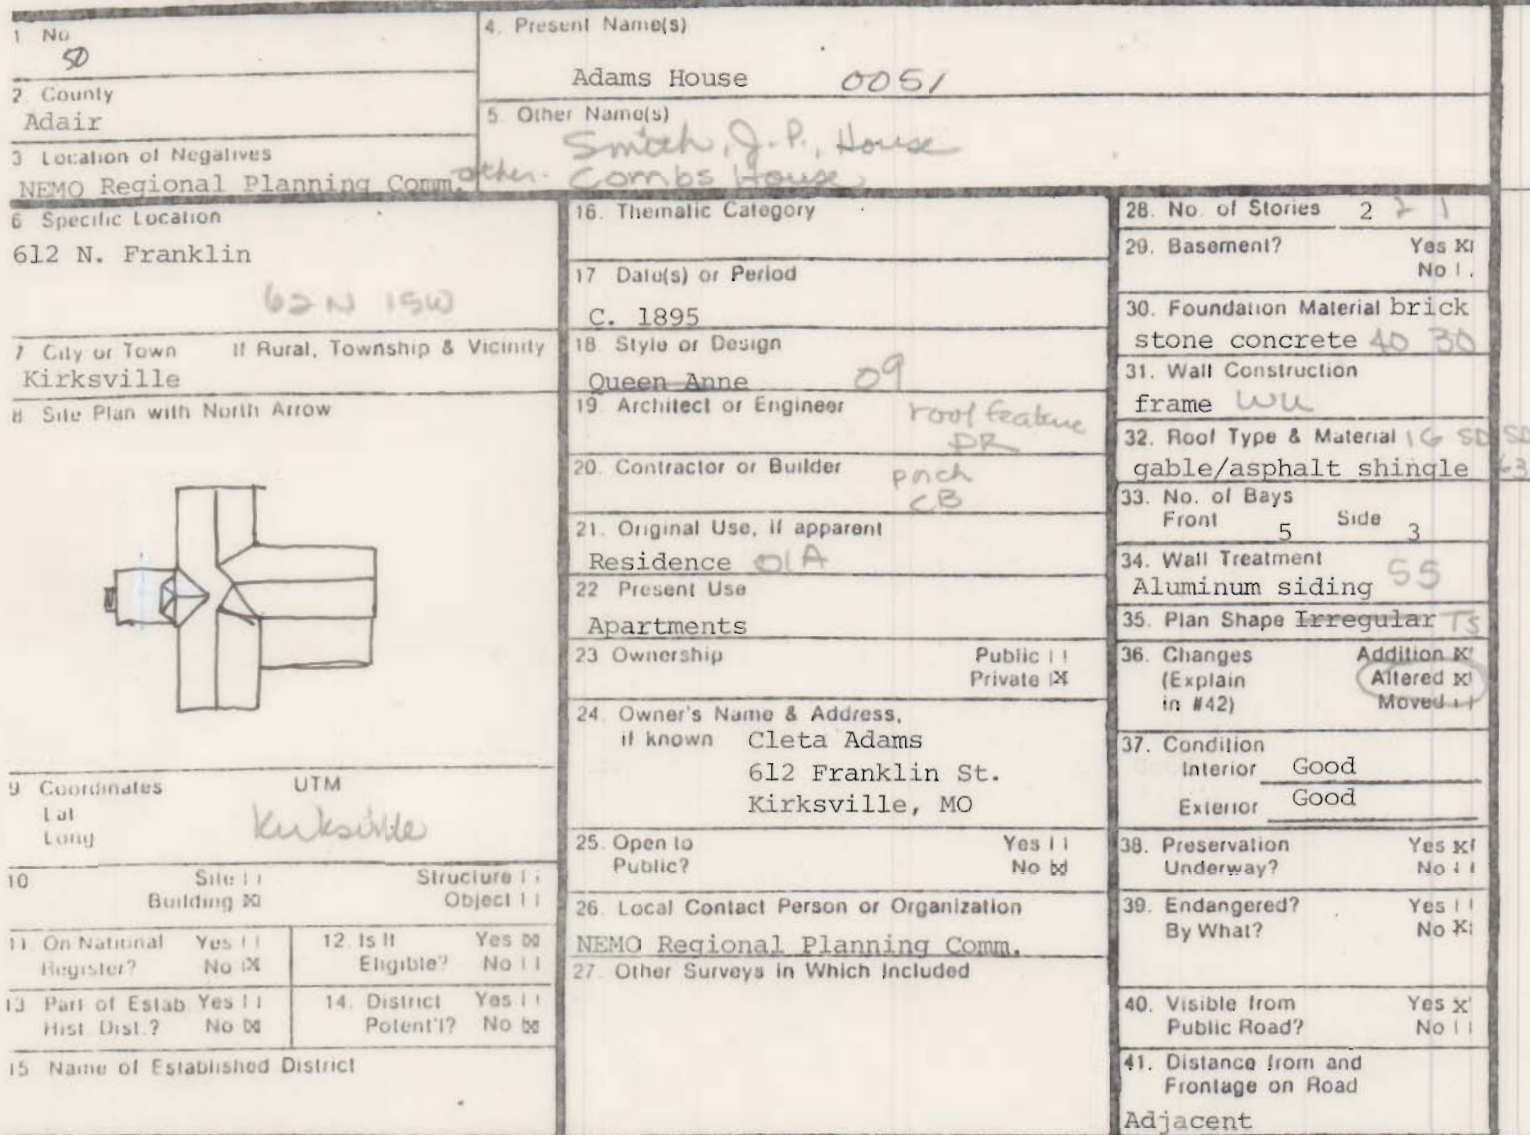 1 No
50
2. County
Adair
3 Location of Negatives
NEMO Regional Planning Comm.
4. Present Name(s)
Adams House 0051
5. Other Name(s)
Smith, J.P., House
other. Combs House
6 Specific Location
612 N. Franklin
62N 15W
7 City or Town If Rural, Township & Vicinity
Kirksville
8 Site Plan with North Arrow
9 Coordinates UTM
Lat
Long
Kirksville
10 Site Structure
Building X Object
11. On National Yes
Register? No X
12. Is It Yes X
Eligible? No
13 Part of Estab Yes
Hist. Dist.? No X
14. District Yes
Potent'l? No X
15 Name of Established District
16. Thematic Category
17 Date(s) or Period
C. 1895
18 Style or Design
Queen Anne 09
19. Architect or Engineer
roof feature
DR
20. Contractor or Builder
porch
CB
21. Original Use, if apparent
Residence 01A
22 Present Use
Apartments
23 Ownership Public
Private X
24. Owner's Name & Address,
if known Cleta Adams
612 Franklin St.
Kirksville, MO
25. Open to Yes
Public? No X
26. Local Contact Person or Organization
NEMO Regional Planning Comm.
27. Other Surveys in Which Included
28. No. of Stories 2
29. Basement? Yes X
No
30. Foundation Material brick
stone concrete 40 30
31. Wall Construction
frame WU
32. Roof Type & Material 1G SD SD
gable/asphalt shingle 63
33. No. of Bays
Front 5 Side 3
34. Wall Treatment
Aluminum siding 55
35. Plan Shape Irregular TS
36. Changes Addition X
(Explain Altered X
in #42) Moved
37. Condition
Interior Good
Exterior Good
38. Preservation Yes X
Underway? No
39. Endangered? Yes
By What? No X
40. Visible from Yes X
Public Road? No
41. Distance from and
Frontage on Road
Adjacent